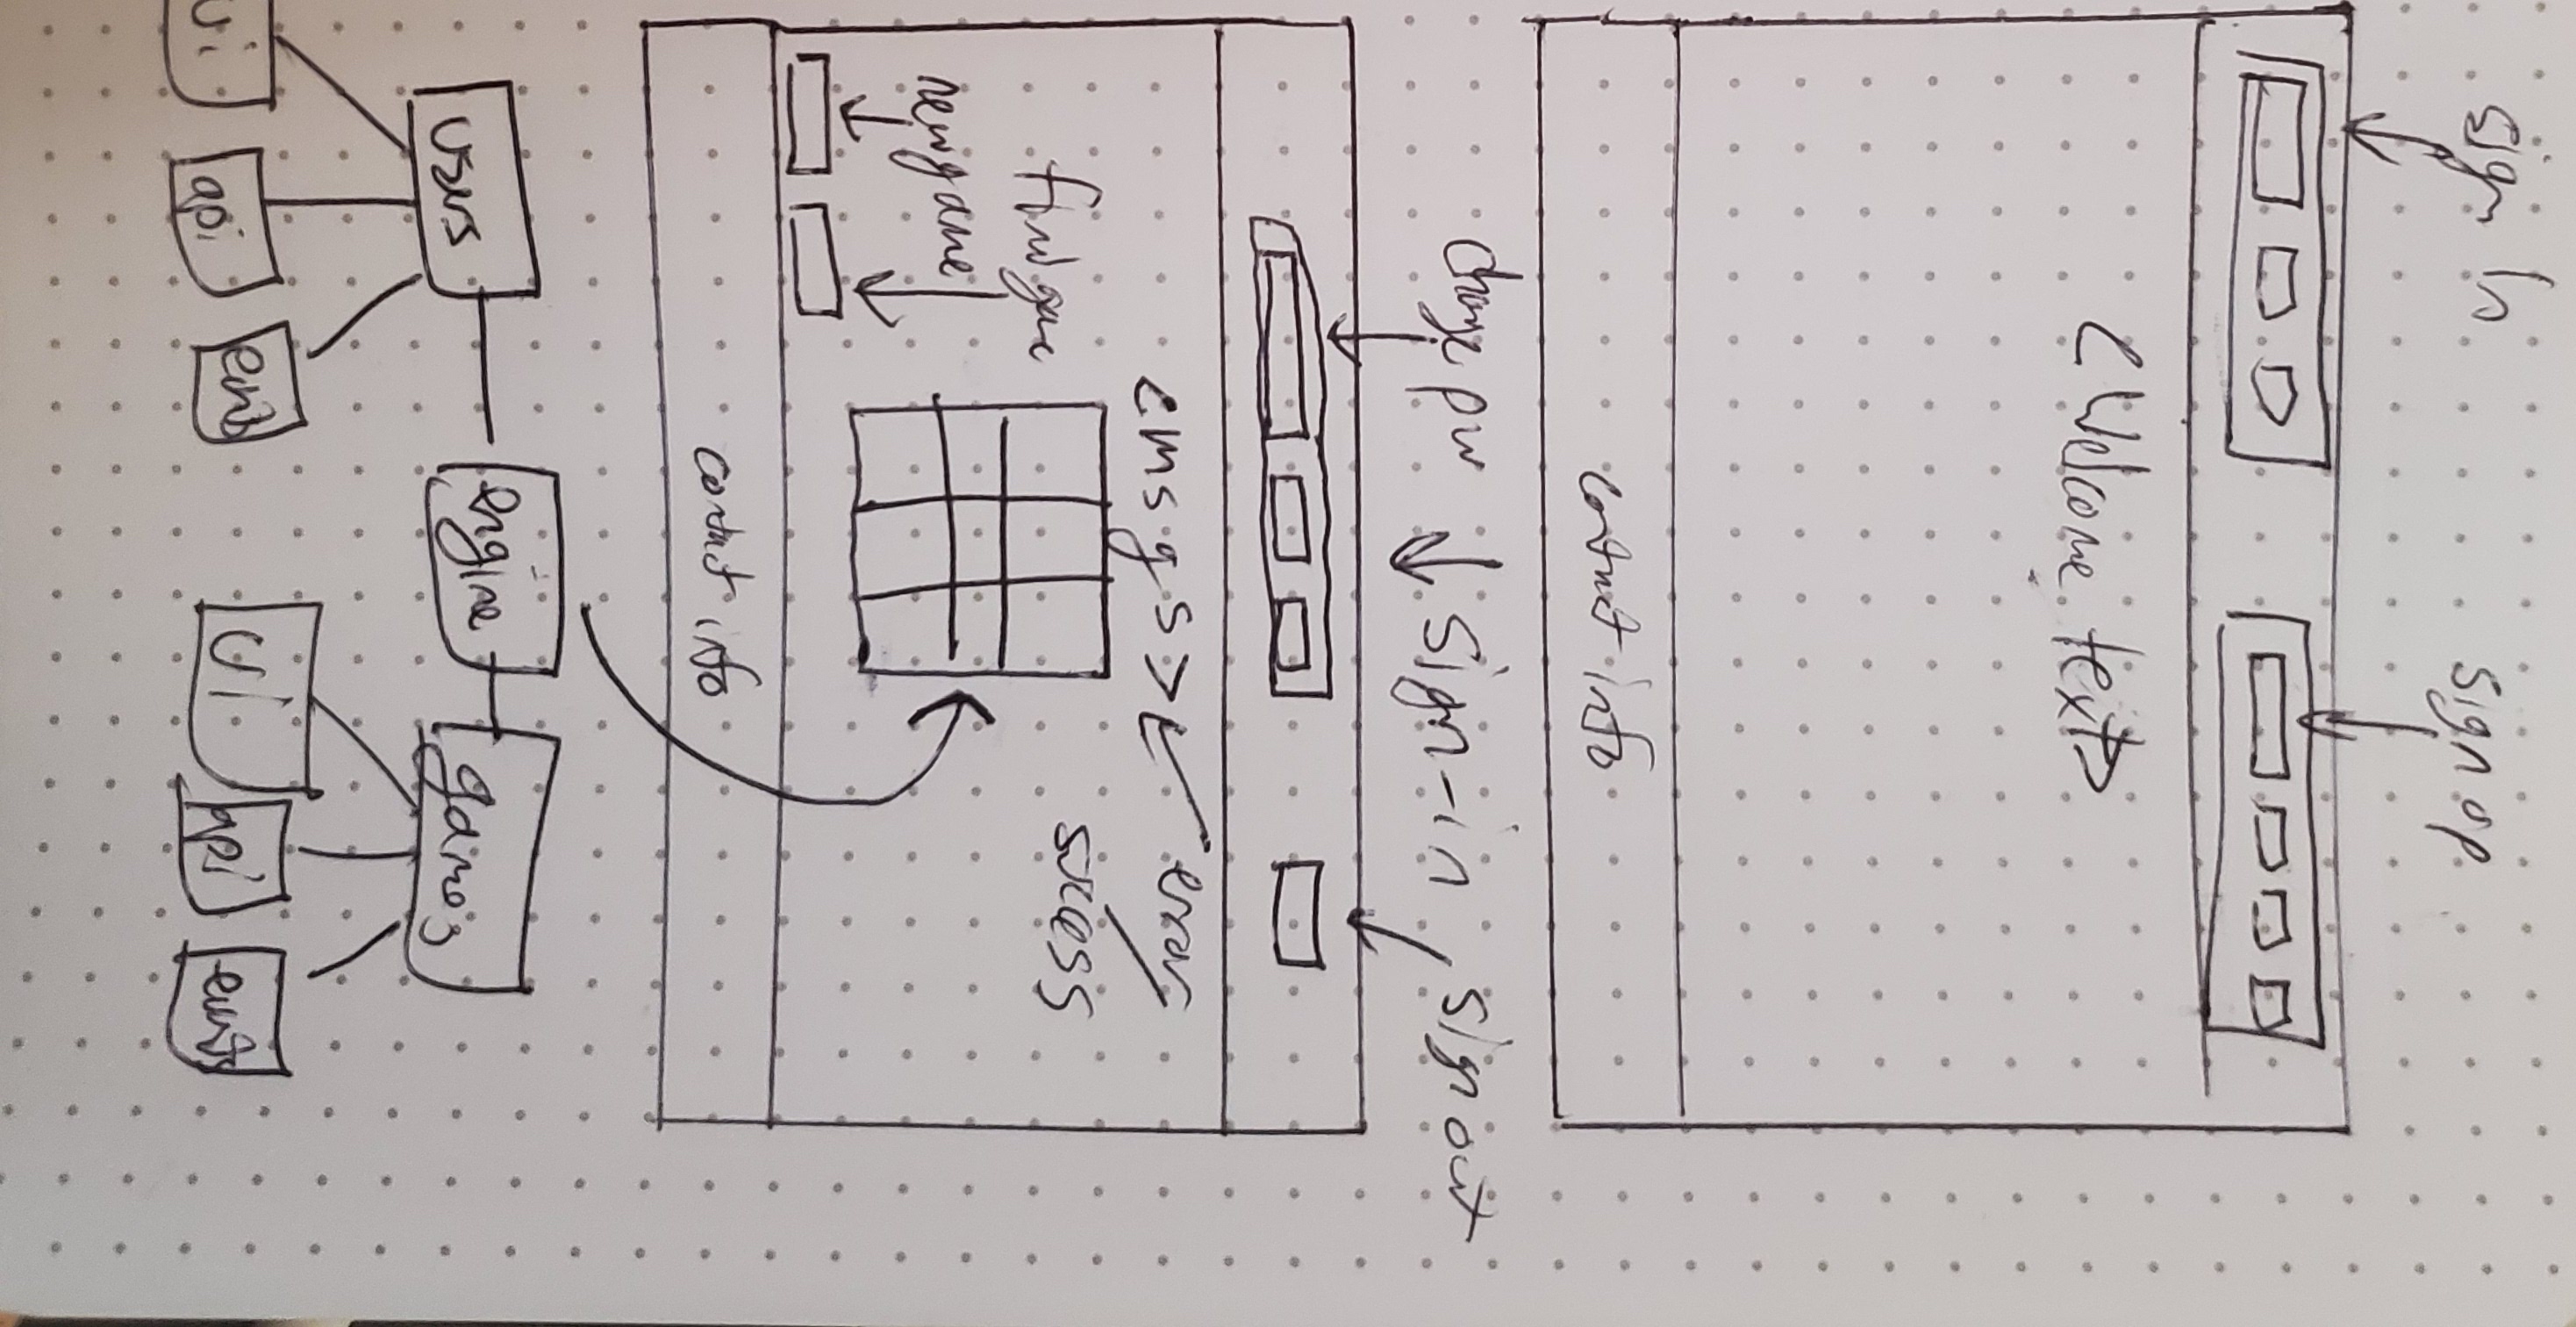 sign in
sign up
<Welcome text>
contact info
change pw ↓ sign-in, sign out
<msgs> ← error/
success
find game
new game
contact info
users
engine
games
ui
api
ents
ui
api
ents